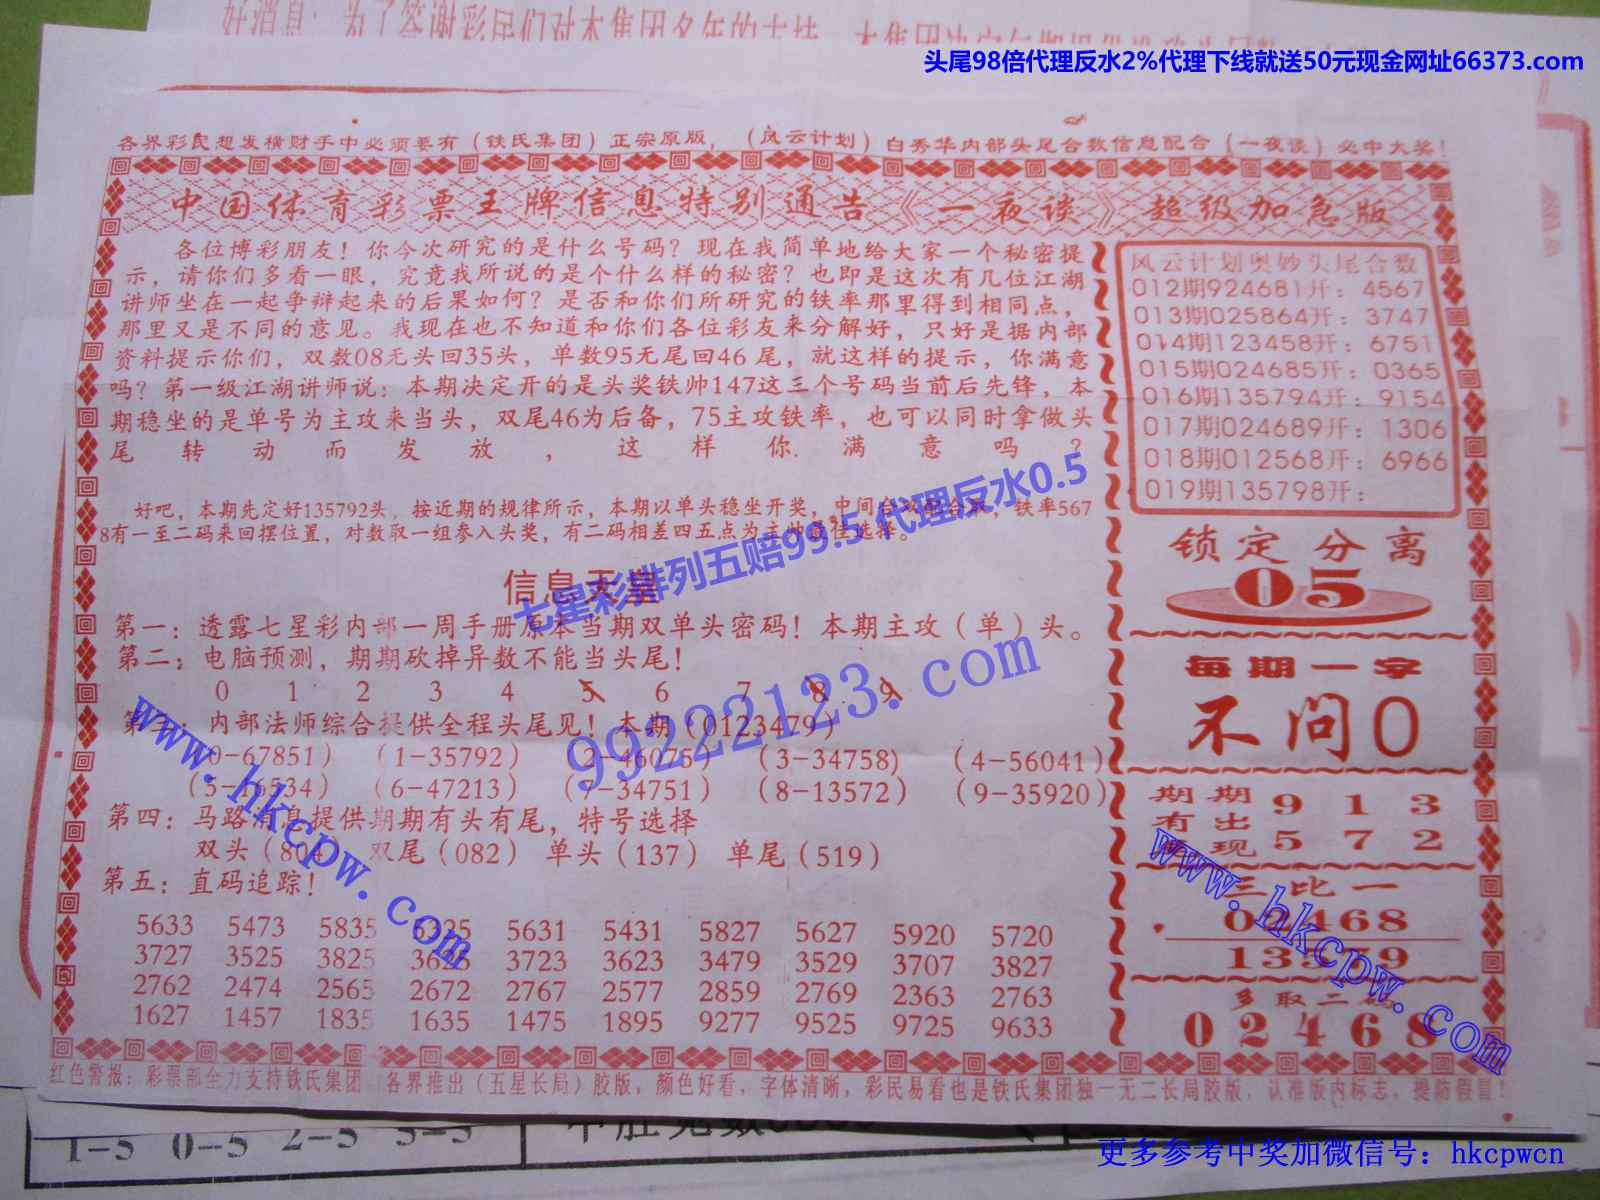 头尾98倍代理反水2%代理下线就送50元现金网址66373.com
各界彩民想发横财手中必须要有(铁氏集团)正宗原版,(风云计划)白秀华内部头尾合数信息配合(一夜谈)必中大奖!
中国体育彩票王牌信息特别通告《一夜谈》超级加急版
各位博彩朋友!你今次研究的是什么号码?现在我简单地给大家一个秘密提
示,请你们多看一眼,究竟我所说的是个什么样的秘密?也即是这次有几位江湖
讲师坐在一起争辩起来的后果如何?是否和你们所研究的铁率那里得到相同点,
那里又是不同的意见。我现在也不知道和你们各位彩友来分解好,只好是据内部
资料提示你们,双数08无头回35头,单数95无尾回46尾,就这样的提示,你满意
吗?第一级江湖讲师说:本期决定开的是头奖铁帅147这三个号码当前后先锋,本
期稳坐的是单号为主攻来当头,双尾46为后备,75主攻铁率,也可以同时拿做头
尾转动而发放,这样你满意吗?
好吧,本期先定好135792头,按近期的规律所示,本期以单头稳坐开奖,中间合数配合取,铁率567
8有一至二码来回摆位置,对数取一组参入头奖,有二码相差四五点为主帅最佳选择。
七星彩排列五赔99.5 代理反水0.5
信息天皇
第一:透露七星彩内部一周手册原本当期双单头密码!本期主攻(单)头。
第二:电脑预测,期期砍掉异数不能当头尾!
0 1 2 3 4 5 6 7 8 9
第三:内部法师综合提供全程头尾见!本期(0123479)
(0-67851) (1-35792) (2-46075) (3-34758) (4-56041)
(5-16534) (6-47213) (7-34751) (8-13572) (9-35920)
第四:马路消息提供期期有头有尾,特号选择
双头(804) 双尾(082) 单头(137) 单尾(519)
第五:直码追踪!
5633 5473 5835 5631 5431 5827 5627 5920 5720
3727 3525 3825 3623 3723 3623 3479 3529 3707 3827
2762 2474 2565 2672 2767 2577 2859 2769 2363 2763
1627 1457 1835 1635 1475 1895 9277 9525 9725 9633
99222123.com
www.hkcpw.com
风云计划奥妙头尾合数
012期924681开:4567
013期025864开:3747
014期123458开:6751
015期024685开:0365
016期135794开:9154
017期024689开:1306
018期012568开:6966
019期135798开:
锁定分离
05
每期一字
不问0
期期 9 1 3
有出
现 5 7 2
三比一
02468
13579
多取二码
02468
www.hkcpw.com
红色警报:彩票部全力支持铁氏集团 各界推出(五星长局)胶版,颜色好看,字体清晰,彩民易看也是铁氏集团独一无二长局胶版,认准版内标志,提防假冒!
1-5 0-5 2-5
更多参考中奖加微信号:hkcpwcn